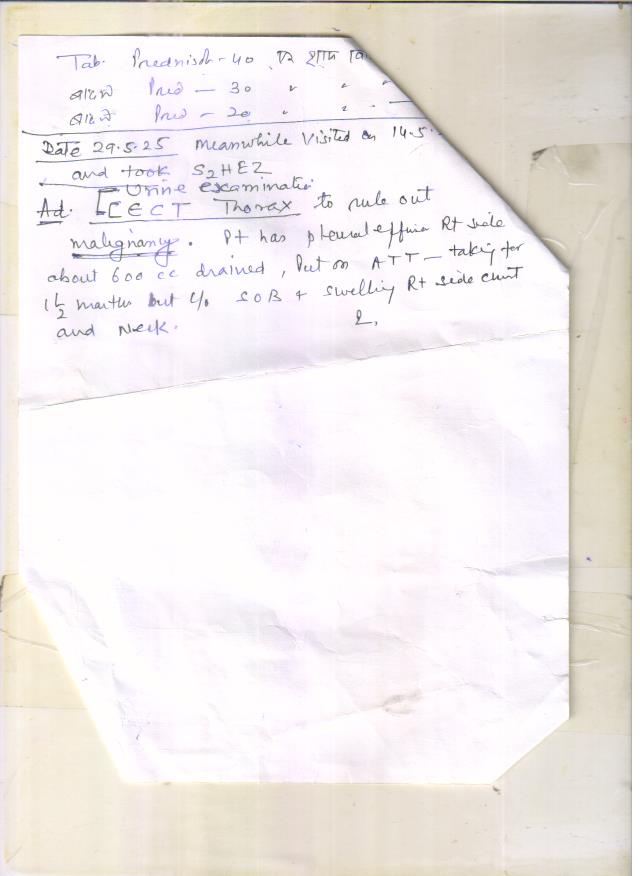 Tab. Prednisolo - 40
बादमे Pred - 30 " " "
बादमे Pred - 20 " "
Date 29.5.25 Meanwhile Visited on 14.5.
and took S2HEZ
Urine examination
Ad. CECT Thorax to rule out
malignancy. Pt has pleural effusion Rt side
about 600 cc drained, Put on ATT - taking for
1 1/2 months but c/o SOB & swelling Rt side chest
and Neck.